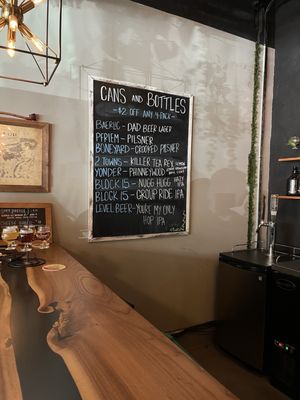 CANS AND BOTTLES
- $2 OFF ANY 4 PACK -
BAERLIC - DAD BEER LAGER
PFRIEM - PILSNER
BONEYARD - CROOKED PILSNER
2 TOWNS - KILLER TEA REX
YONDER - PHINNEYWOOD
BLOCK 15 - NUGG HUGG HAZY IPA
BLOCK 15 - GROUP RIDE IPA
LEVEL BEER - YOU'RE MY ONLY
HOP IPA